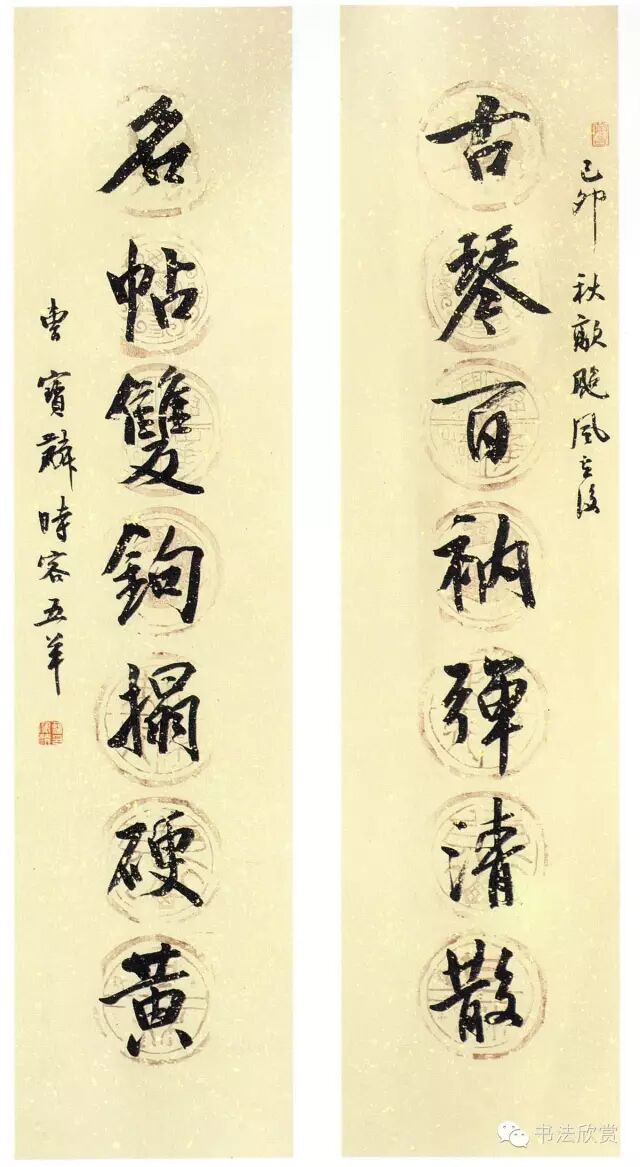 己卯秋風後
古琴百衲彈清散
名帖雙鉤搨硬黃
曹寶麟時客五羊
书法欣赏